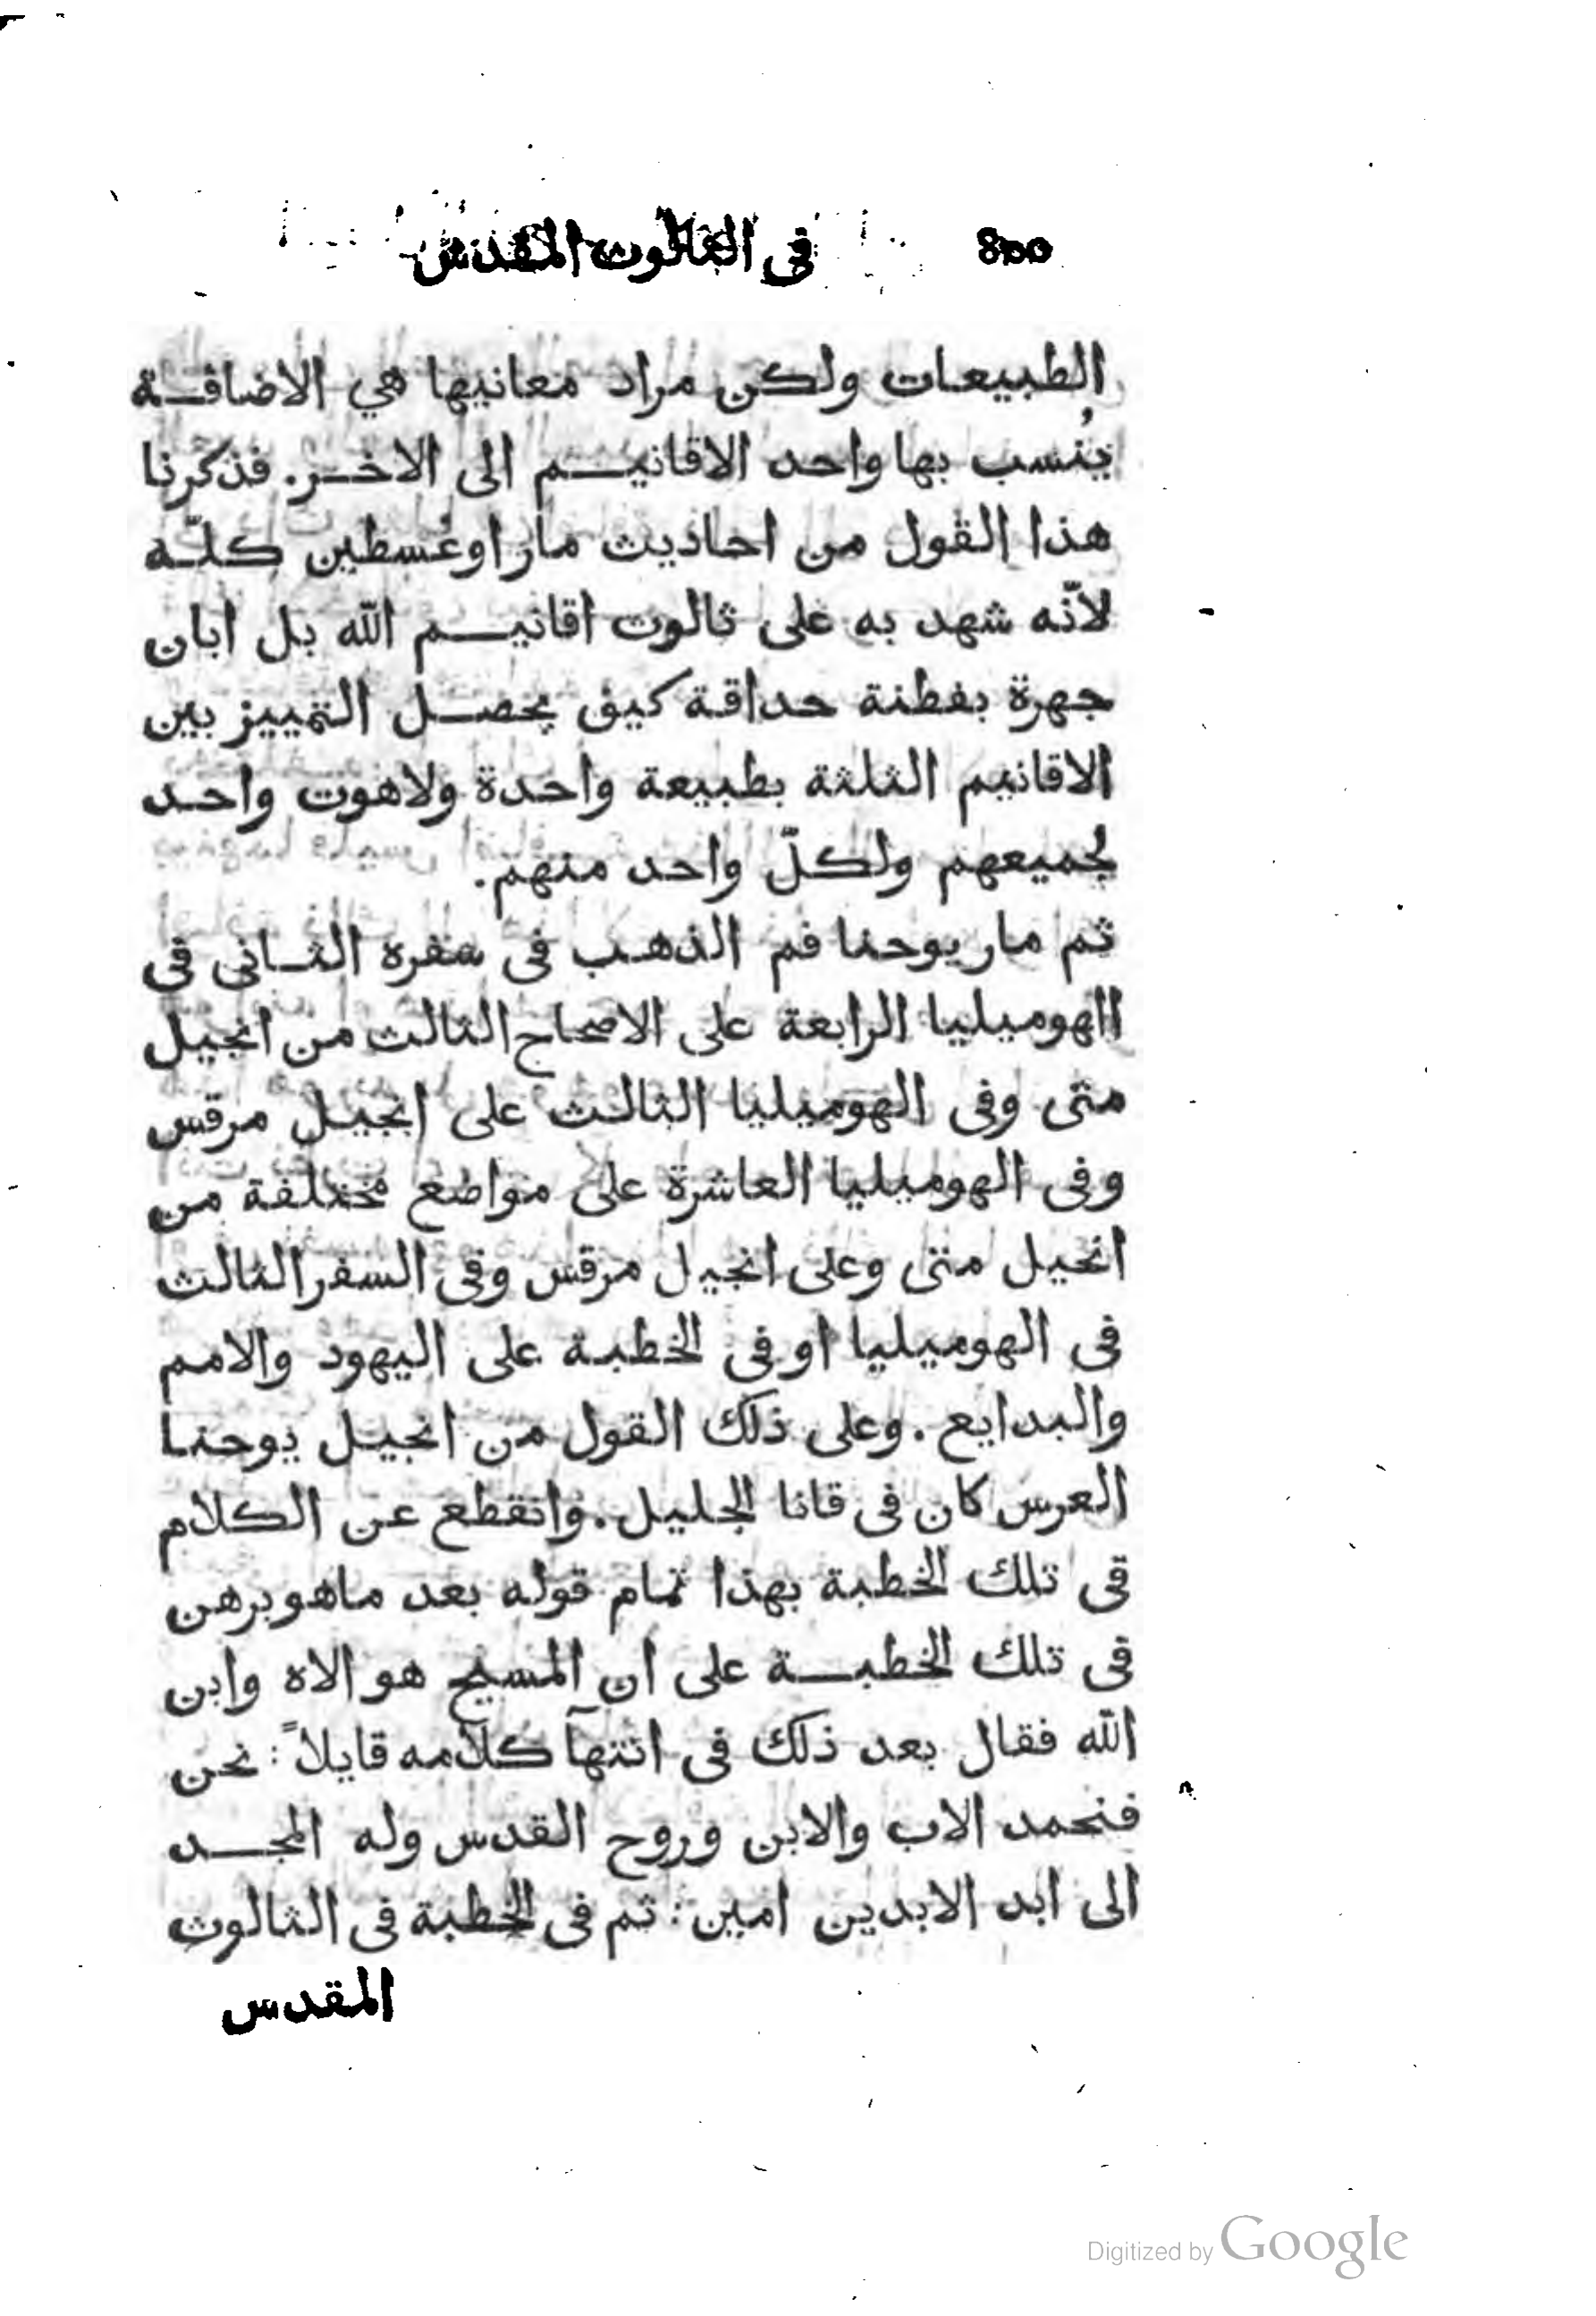 800 فى الثالوث المقدس
الطبيعات ولكن مراد معانيها هي الاضافة
يُنسب بها واحد الاقانيم الى الاخر. فذكرنا
هذا القول من احاديث مار اوغسطين كلّه
لانّه شهد به على ثالوث اقانيم الله بل ابان
جهرة بفطنة حداقة كيف يحصل التمييز بين
الاقانيم الثلثة بطبيعة واحدة ولاهوت واحد
لجميعهم ولكلّ واحد منهم.
ثم مار يوحنا فم الذهب فى سفره الثانى فى
الهوميليا الرابعة على الاصحاح الثالث من انجيل
متى وفى الهوميليا الثالث على انجيل مرقس
وفى الهوميليا العاشرة على مواضع مختلفة من
انجيل متى وعلى انجيل مرقس وفى السفر الثالث
فى الهوميليا او فى الخطبة على اليهود والامم
والبدايع. وعلى ذلك القول من انجيل يوحنا
العرس كان فى قانا الجليل. وانقطع عن الكلام
فى تلك الخطبة بهذا تمام قوله بعد ماهو برهن
فى تلك الخطبة على ان المسيح هو الاه وابن
الله فقال بعد ذلك فى انتهآ كلامه قايلاً: نحن
فنحمد الاب والابن وروح القدس وله المجد
الى ابد الابدين امين: ثم فى الخطبة فى الثالوث
المقدس
Digitized by Google